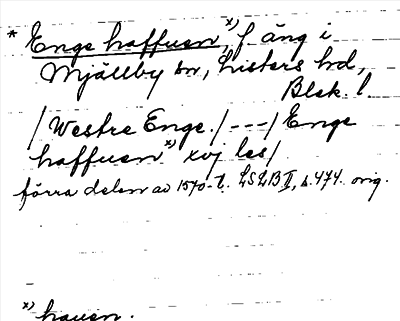 * Enge haffuen x), f. äng i
Mjällby sn, Listers hd,
Blek. l.
/Westre Enge./ ---/ Enge
haffuen x) xvj les/
förra delen av 1570-t. LSLB II, s. 474. orig.
x) hauen.